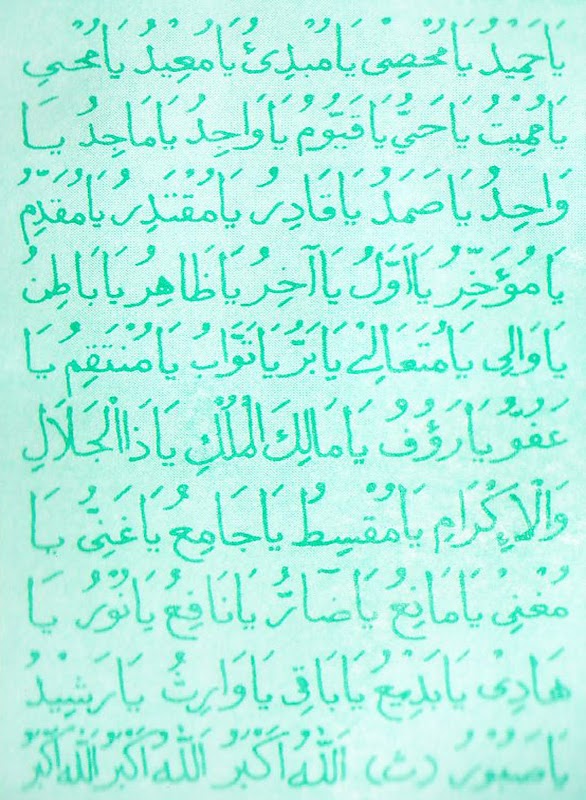 يَاحَمِيْدُ يَا مُحْصِيْ يَا مُبْدِئُ يَا مُعِيْدُ يَا مُحْيِي
يَا مُمِيْتُ يَا حَيُّ يَا قَيُّوْمُ يَا وَاجِدُ يَا مَاجِدُ يَا
وَاحِدُ يَا صَمَدُ يَا قَادِرُ يَا مُقْتَدِرُ يَا مُقَدِّمُ
يَا مُؤَخِّرُ يَا اَوَّلُ يَا آخِرُ يَا ظَاهِرُ يَا بَاطِنُ
يَا وَالِي يَا مُتَعَالِيْ يَا بَرُّ يَا تَوَّابُ يَا مُنْتَقِمُ يَا
عَفُوُّ يَا رَؤُفُ يَا مَالِكَ الْمُلْكِ يَا ذَا الْجَلَالِ
وَالْاِكْرَامِ يَا مُقْسِطُ يَا جَامِعُ يَا غَنِيُّ يَا
مُغْنِيْ يَا مَانِعُ يَا ضَارُّ يَا نَافِعُ يَا نُوْرُ يَا
هَادِيْ يَا بَدِيْعُ يَا بَاقِي يَا وَارِثُ يَا رَشِيْدُ
يَا صَبُوْرُ (ث) اَللّٰهُ اَكْبَرُ اَللّٰهُ اَكْبَرُ اَللّٰهُ اَكْبَرُ